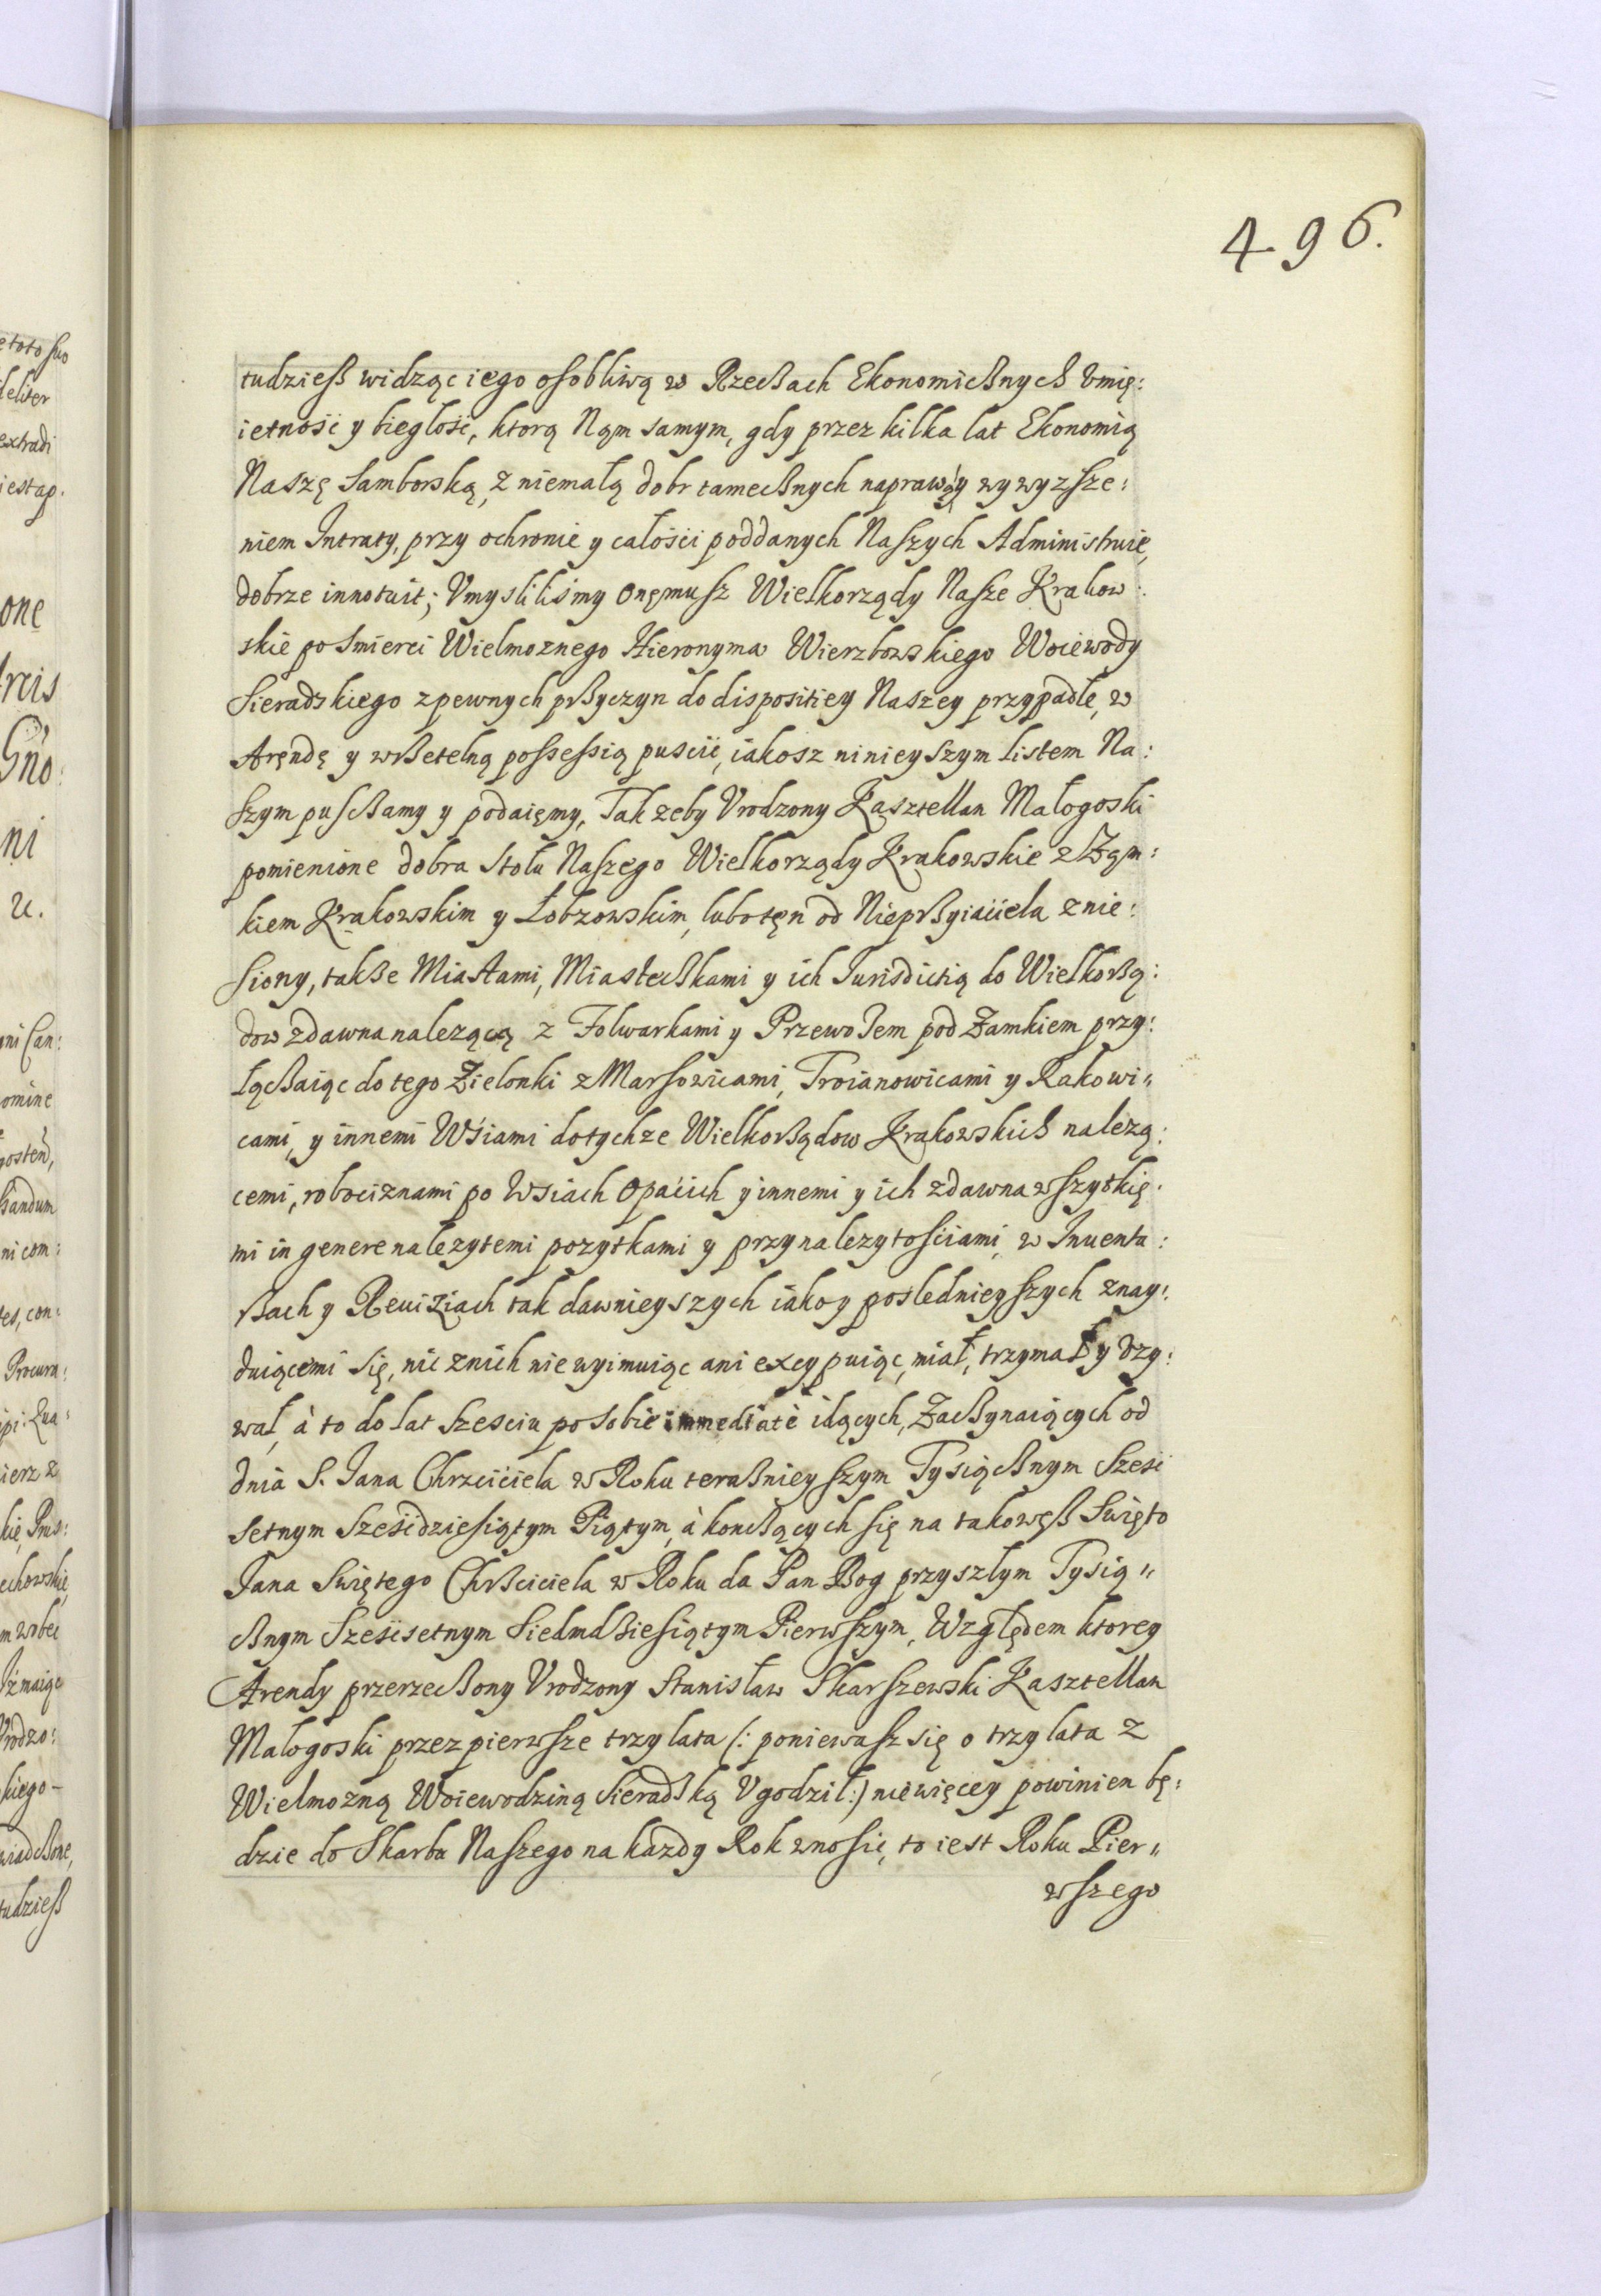 496.
tudzieß widząc iego osobliwą w Rzeczach Ekonomicznych Vmię:
ietność y biegłość, ktorą Nąm samym, gdy przez kilka lat Ekonomią
Naszę Samborską, z niemałą dobr tamecznych naprawą y wywyzsze:
niem Intraty, przy ochronie y całości poddanych Naszych Administruie,
dobrze innotuit; Vmyslilismy onęmusz Wielkorządy Nasze Krakow:
skie po smierci Wielmoznego Hieronyma Wierzbowskiego Woiewody
Sieradzkiego z pewnych przyczyn do dispositiey Naszey przypadłe, w
Aręndę y wrzetelną possessią puscić, iakosz ninieyszym listem Na:
szym pusczamy y podaięmy, Tak zeby Vrodzony Kasztellan Małogoski
pomienione dobra Stołu Naszego Wielkorządy Krakowskie z Ząm:
kiem Krakowskim y Łobzowskim, lubo tęn od Nieprzyiaciela znie:
siony, takze Miastami, Miasteczkami y ich Jurisdictią do Wielkorzą:
dow zdawna nalezącą z Folwarkami y Przewozem pod Zamkiem przy:
łączaiąc do tego Zielonki z Marszowicami, Troianowicami y Rakowi"
cami, y innemi Wsiami do tychze Wielkorządow Krakowskich nalezą:
cemi, robociznami po Wsiach Opacich y innemi y ich zdawna wszytkię:
mi in genere nalezytemi pozytkami y przynalezytościami, w Inuenta:
rzach y Reuiziach tak dawnieyszych iako y posledniey szych znay:
duiącemi się, nic z nich nie wyimuiąc ani excypuiąc, miał, trzymał y vzy:
wał, à to do lat szesciu po sobie immediatè idących, Zaczynaiących od
dnia S. Jana Chrzciciela w Roku teraznieyszym Tysiącznym Szesc
setnym Szescdziesiątym Piątym, à konczących się na takowęß Swięto
Jana Swiętego Chrzciciela w Roku da Pan Bog przyszłym Tysią"
cznym Szescsetnym Siedmdziesiątym Pierwszym, Względem ktorey
Arendy przerzeczony Vrodzony Stanisław Skarszewski Kasztellan
Małogoski przez pierwsze trzy lata (: poniewasz się o trzy lata z
Wielmozną Woiewodziną Sieradzką Vgodził:) nie więcey powinien bę:
dzie do Skarbu Naszego na kazdy Rok wnosić, to iest Roku Pier"
wszego